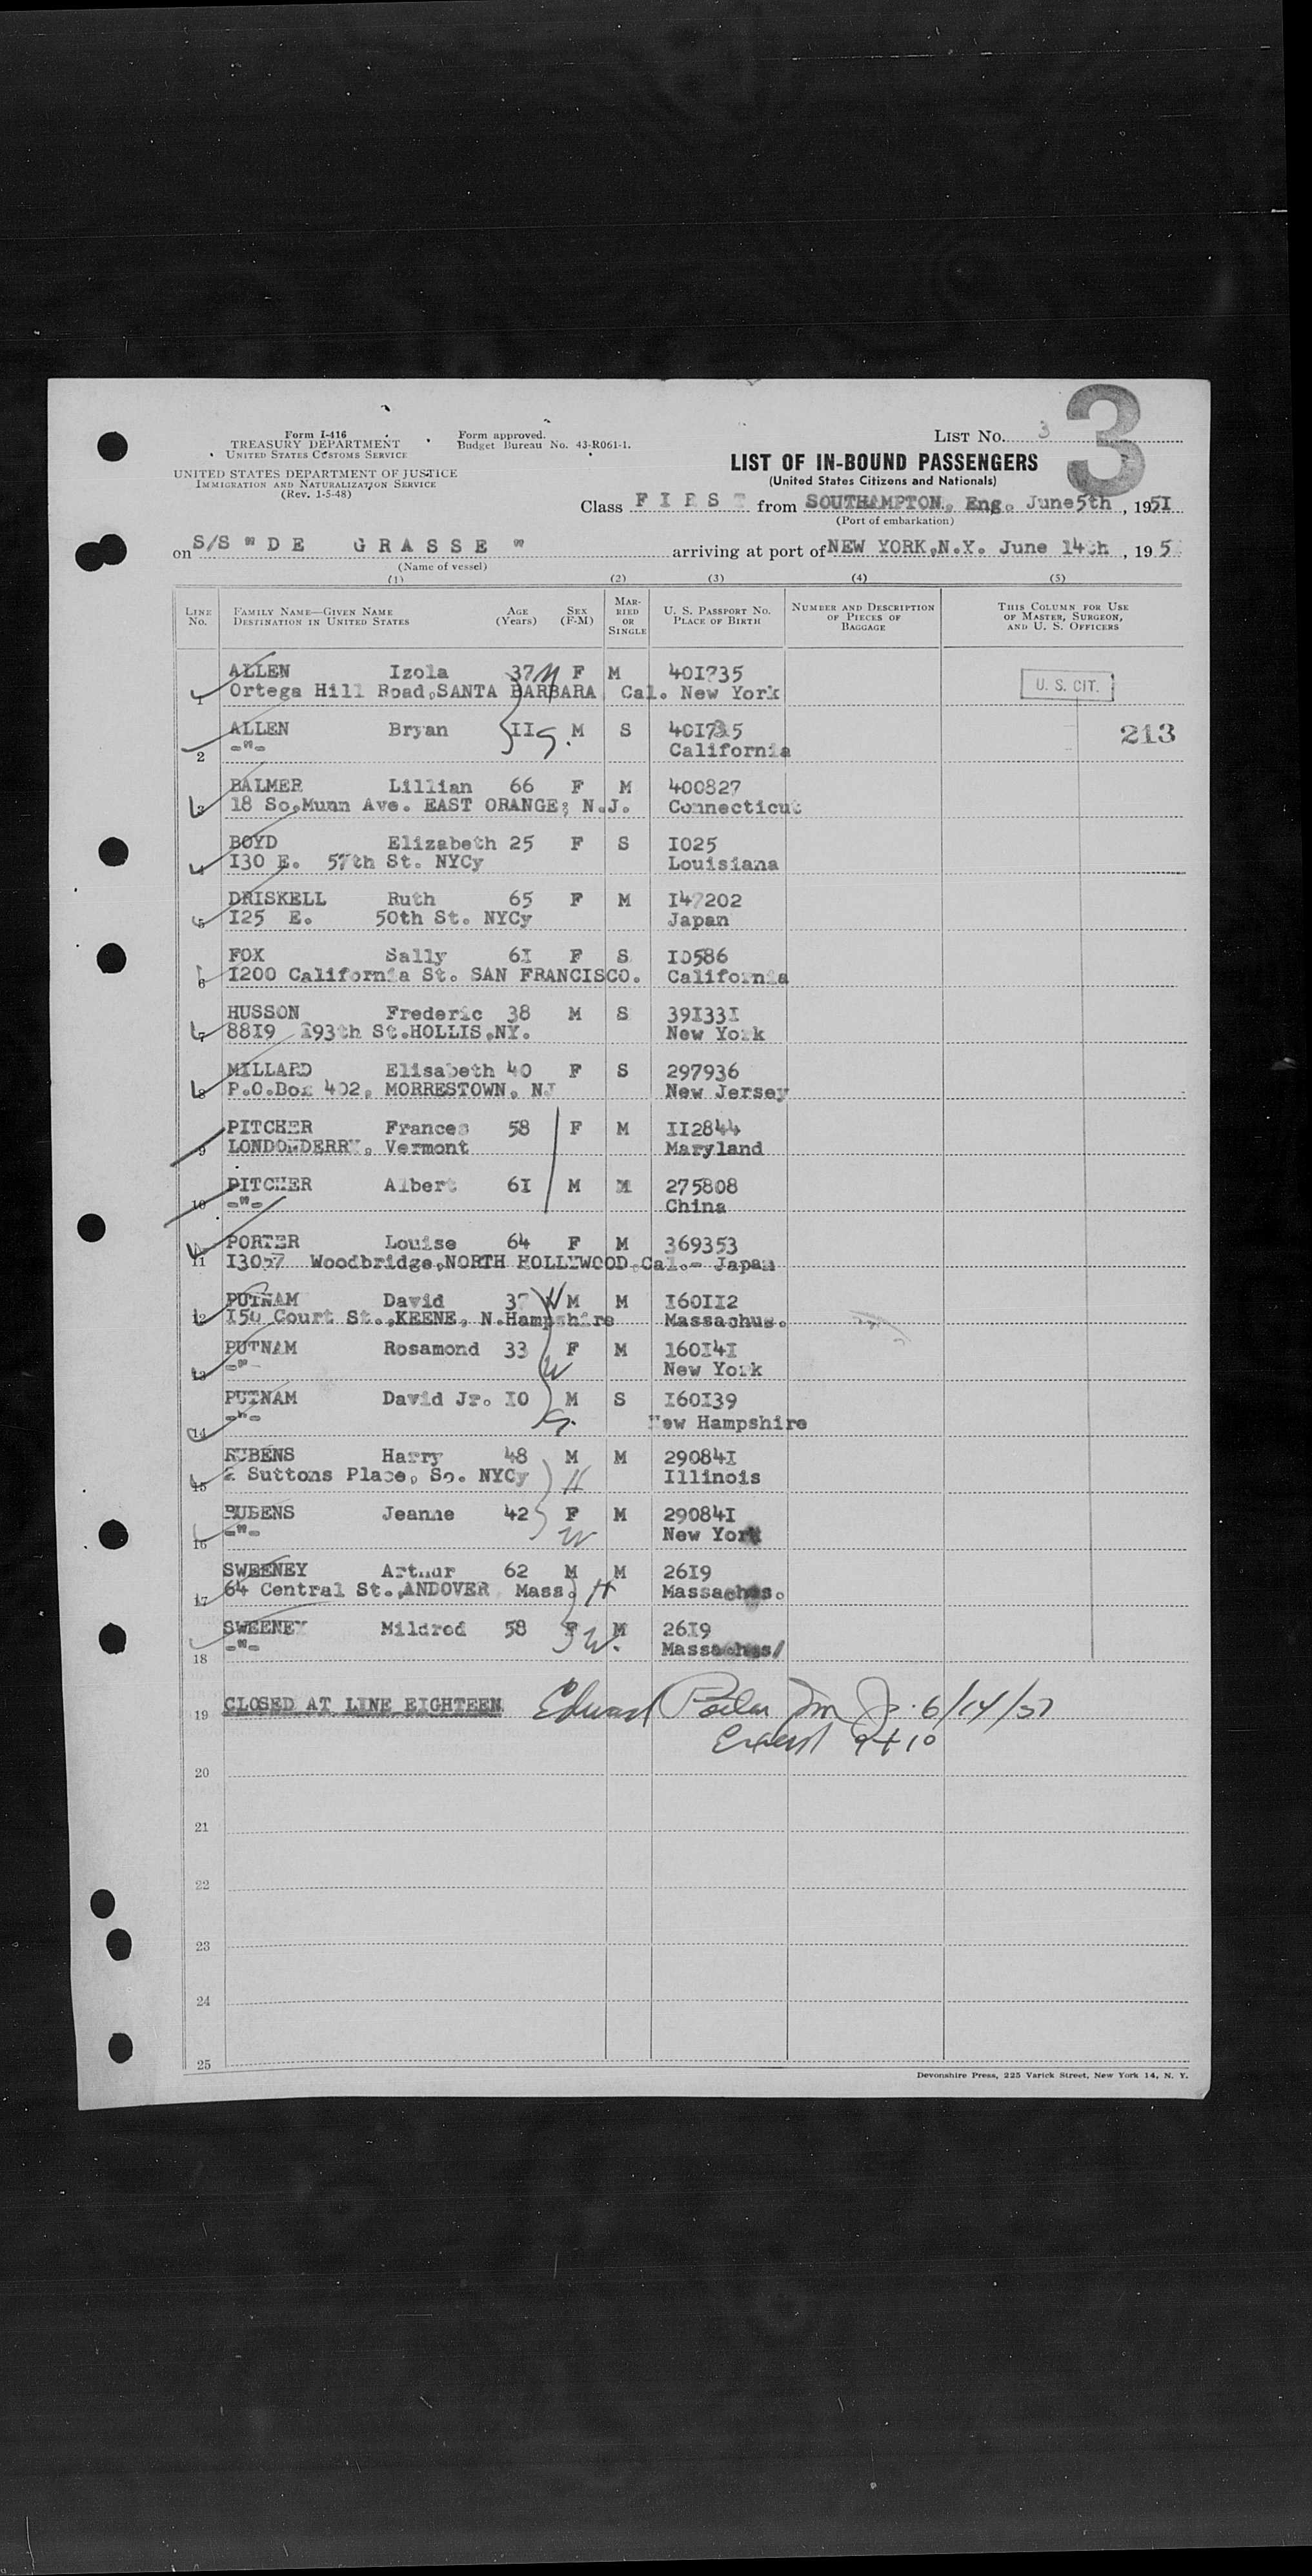 Form I-416
TREASURY DEPARTMENT
UNITED STATES CUSTOMS SERVICE
UNITED STATES DEPARTMENT OF JUSTICE
IMMIGRATION AND NATURALIZATION SERVICE
(Rev. 1-5-48)
Form approved.
Budget Bureau No. 43-R061-1.
LIST No. 3
3
LIST OF IN-BOUND PASSENGERS
(United States Citizens and Nationals)
Class F I R S T from SOUTHAMPTON, Eng. June 5th , 1951
(Port of embarkation)
on S/S "D E G R A S S E " arriving at port of NEW YORK,N.Y. June 14th , 195
(Name of vessel)
(1) (2) (3) (4) (5)
LINE No. FAMILY NAME—GIVEN NAME DESTINATION IN UNITED STATES AGE (Years) SEX (F-M) MARRIED OR SINGLE U. S. PASSPORT No. PLACE OF BIRTH NUMBER AND DESCRIPTION OF PIECES OF BAGGAGE THIS COLUMN FOR USE OF MASTER, SURGEON, AND U. S. OFFICERS
ALLEN Izola 37 M F M
1 Ortega Hill Road,SANTA BARBARA Cal. New York U. S. CIT.
ALLEN Bryan II S. M S 213
2 -"- California
BALMER Lillian 66 F M 400827
3 18 So,Munn Ave. EAST ORANGE; N.J. Connecticut
BOYD Elizabeth 25 F S I025
4 I30 E. 57th St. NYCy Louisiana
DRISKELL Ruth 65 F M I47202
5 I25 E. 50th St. NYCy Japan
FOX Sally 6I F S I0586
6 I200 California St. SAN FRANCISCO. California
HUSSON Frederic 38 M S 39I33I
7 88I9 I93th St.HOLLIS,NY. New York
MILLARD Elisabeth 40 F S 297936
8 P.O.Box 402, MORRESTOWN, NJ New Jersey
PITCHER Frances 58 F M II2844
9 LONDONDERRY, Vermont Maryland
PITCHER Albert 6I M M 275808
10 -"- China
PORTER Louise 64 F M 369353
11 I3057 Woodbridge,NORTH HOLLYWOOD,Cal.- Japan
PUTNAM David 37 M M I60II2
12 I50 Court St.,KEENE, N.Hampshire Massachus.
PUTNAM Rosamond 33 F M 160I4I
13 -"- W New York
PUTNAM David Jr. I0 M S I60I39
14 -"- S. New Hampshire
RUBENS Harry 48 M M 29084I
15 2 Suttons Place, So. NYCy H Illinois
RUBENS Jeanne 42 F M 29084I
16 -"- W New York
SWEENEY Arthur 62 M M 26I9
17 64 Central St.,ANDOVER Mass. H Massachus.
SWEENEY Mildred 58 F M 26I9
18 -"- W. Massachus/
19 CLOSED AT LINE EIGHTEEN Edward 6/14/51
9+10
20
21
22
23
24
25
Devonshire Press, 225 Varick Street, New York 14, N. Y.